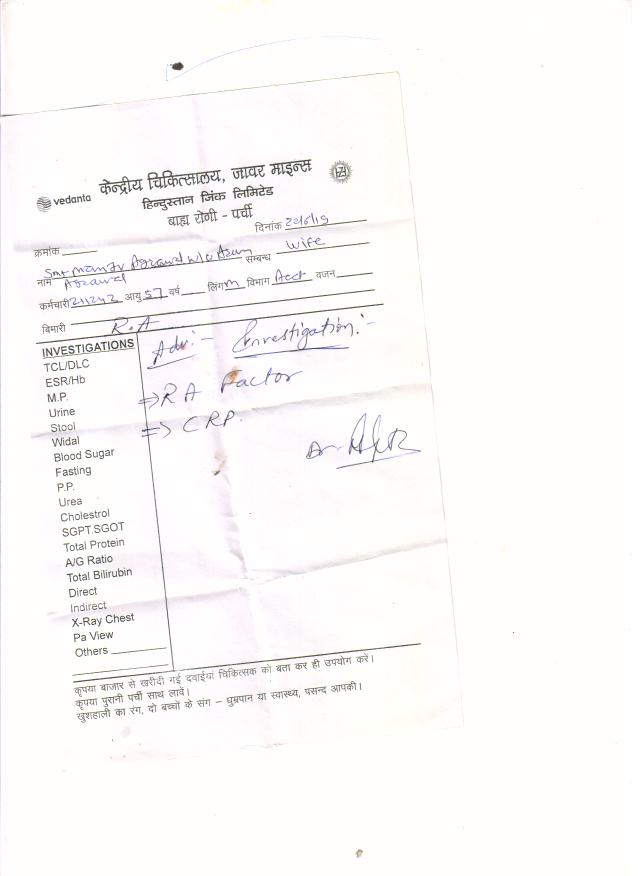 vedanta केन्द्रीय चिकित्सालय, जावर माइन्स
हिन्दुस्तान जिंक लिमिटेड
HZL
बाह्य रोगी - पर्ची
दिनांक
क्रमांक
सम्बन्ध Wife
नाम Smt Manju Agrawal w/o
Agrawal
कर्मचारी 211242 आयु 57 वर्ष लिंग विभाग वजन
बिमारी R.A
INVESTIGATIONS
Adv:- Investigation:-
TCL/DLC
ESR/Hb
M.P.
⇒ RA Factor
Urine
Stool
⇒ CRP.
Widal
Blood Sugar
Dr
Fasting
P.P.
Urea
Cholestrol
SGPT.SGOT
Total Protein
A/G Ratio
Total Bilirubin
Direct
Indirect
X-Ray Chest
Pa View
Others
कृपया बाजार से खरीदी गई दवाईयां चिकित्सक को बता कर ही उपयोग करें।
कृपया पुरानी पर्ची साथ लावें।
खुशहाली का रंग, दो बच्चों के संग - धुम्रपान या स्वास्थ्य, पसन्द आपकी।